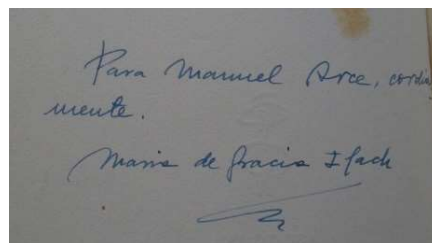 Para Manuel Arce, cordial
mente.
Maria de Gracia Ifach